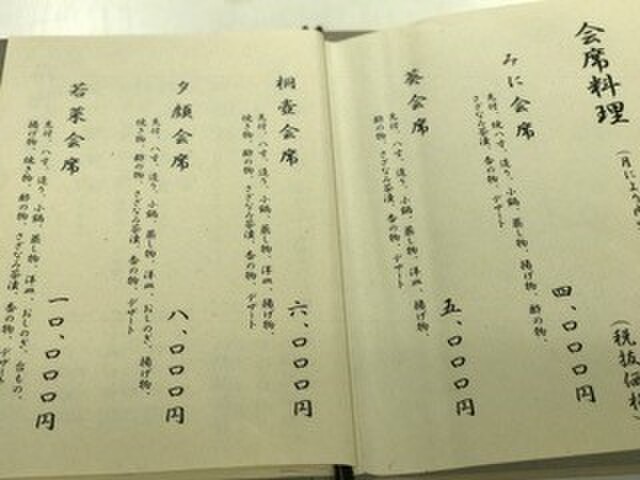 会席料理
(月によ
(税抜価格
みに会席
先付、八寸、造り、小鍋、蒸し物、揚げ物、酢の物、
さざなみ茶漬、香の物、デザート
四、〇〇〇円
葵会席
先付、八寸、造り、小鍋、蒸し物、洋皿、揚げ物、
酢の物、さざなみ茶漬、香の物、デザート
五、〇〇〇円
桐壺会席
先付、八寸、造り、小鍋、蒸し物、洋皿、揚げ物、
焼き物、酢の物、さざなみ茶漬、香の物、デザート
六、〇〇〇円
夕顔会席
先付、八寸、造り、小鍋、蒸し物、洋皿、おしのぎ、揚げ物、
焼き物、酢の物、さざなみ茶漬、香の物、デザート
八、〇〇〇円
若菜会席
先付、八寸、造り、小鍋、蒸し物、洋皿、おしのぎ、台もの、
揚げ物、焼き物、酢の物、さざなみ茶漬、香の物、デザート
一〇、〇〇〇円